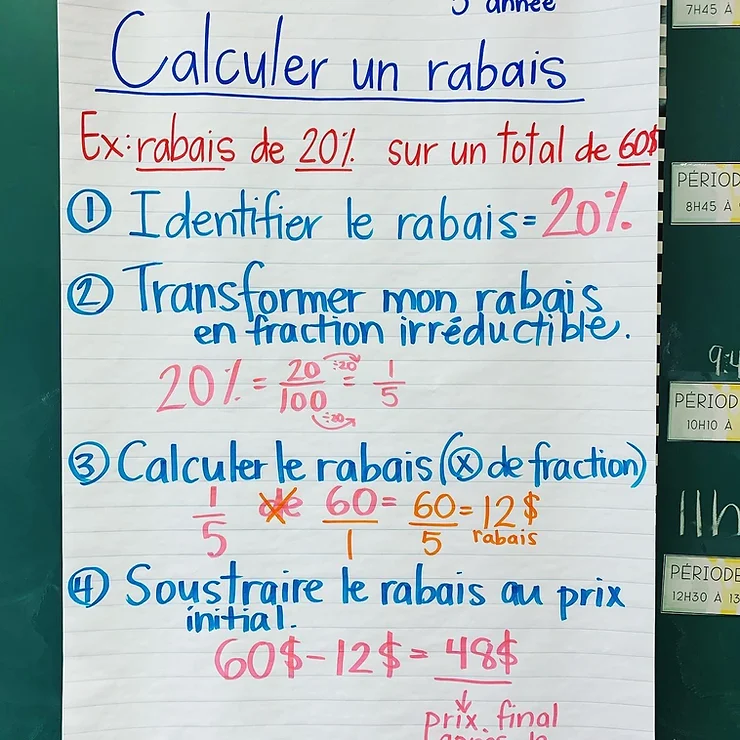 5e année
Calculer un rabais
Ex: rabais de 20% sur un total de 60$
① Identifier le rabais = 20%
② Transformer mon rabais
en fraction irréductible.
20% = 20/100 = 1/5
÷20
÷20
③ Calculer le rabais (ⓧ de fraction)
1/5 de × 60/1 = 60/5 = 12$
rabais
④ Soustraire le rabais au prix
initial.
60$ - 12$ = 48$
↓
prix final
après le
7H45 À
PÉRIOD
8H45 À
9:4
PÉRIOD
10H10 À
11h
PÉRIODE
12H30 À 13